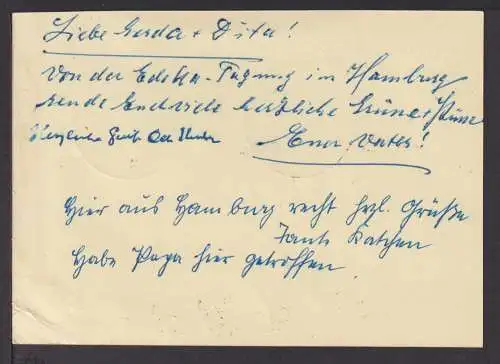 Liebe Gerda + Dita!
Von der Edeka-Tagung in Hamburg
sende Euch viele herzliche Grüße + Küsse
Herzliche Grüße
Euer Vater!
Hier aus Hamburg recht hrzl. Grüße
Tante Kätchen
Habe Papa hier getroffen